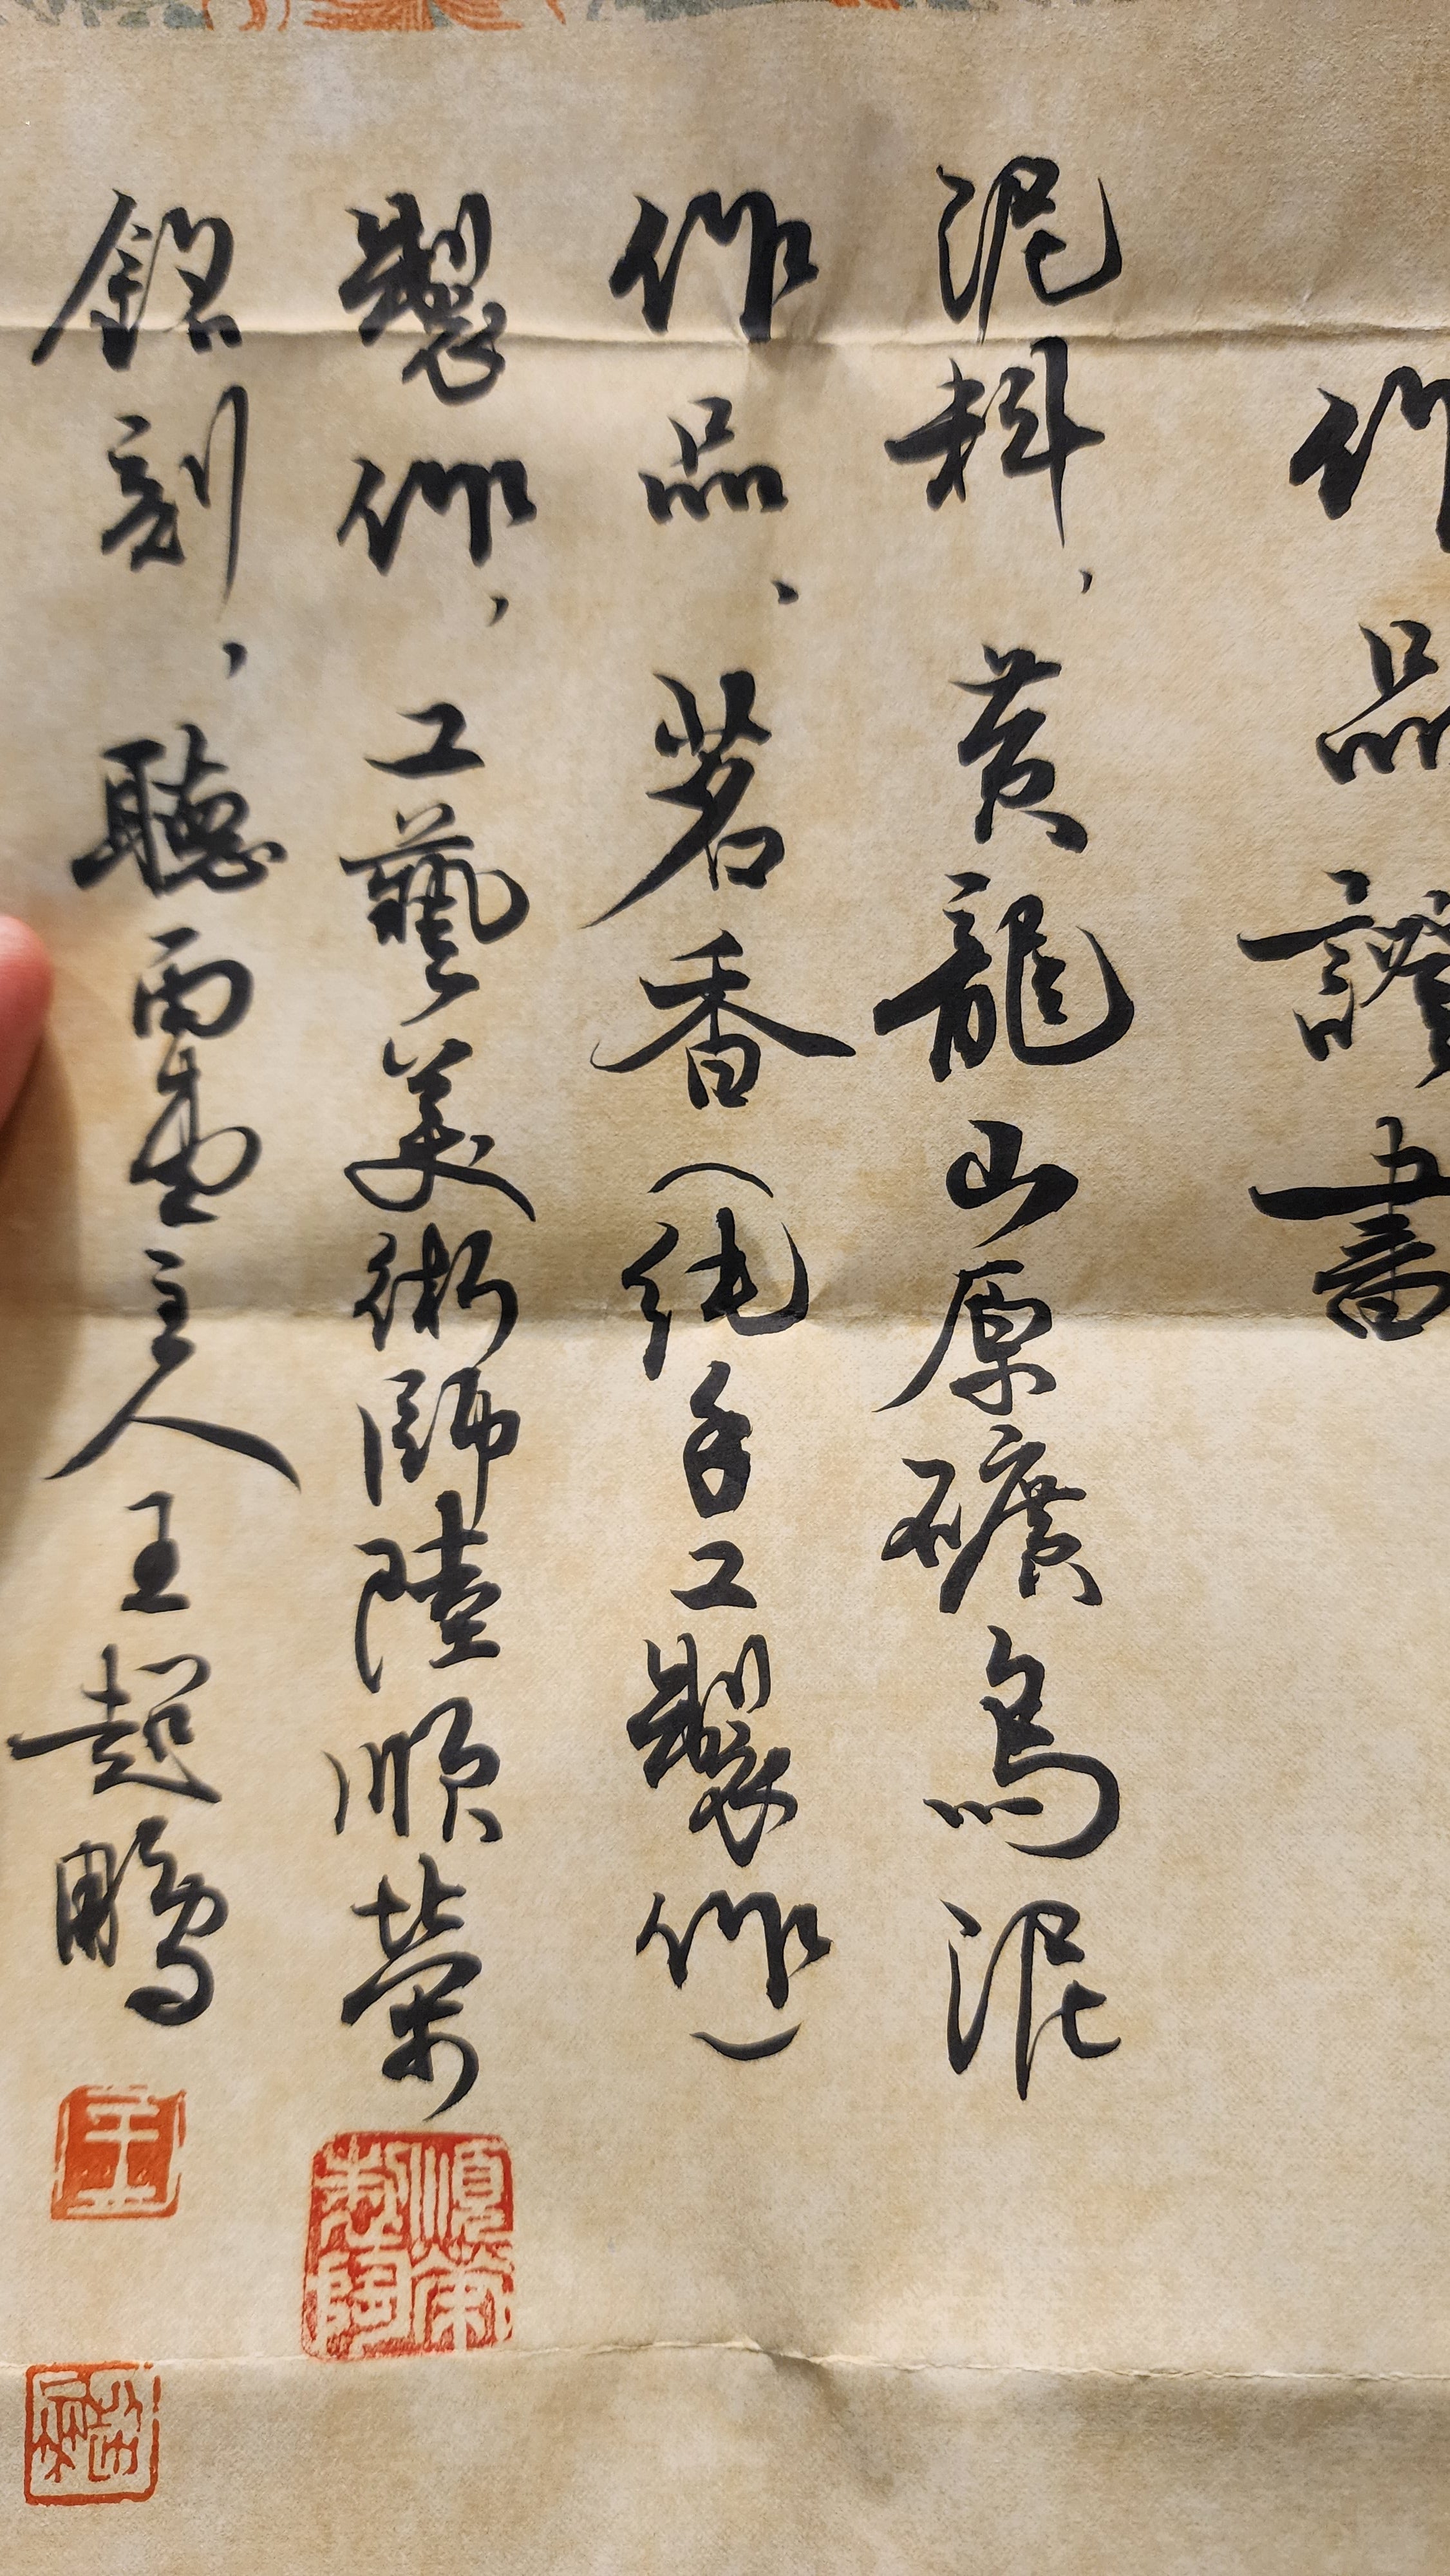 作品證書
泥料，黃龍山原礦烏泥
作品、茗香（純手工製作）
製作，工藝美術師陸順榮
銘刻，聽雨軒主人王超鵬
順榮製陶
王